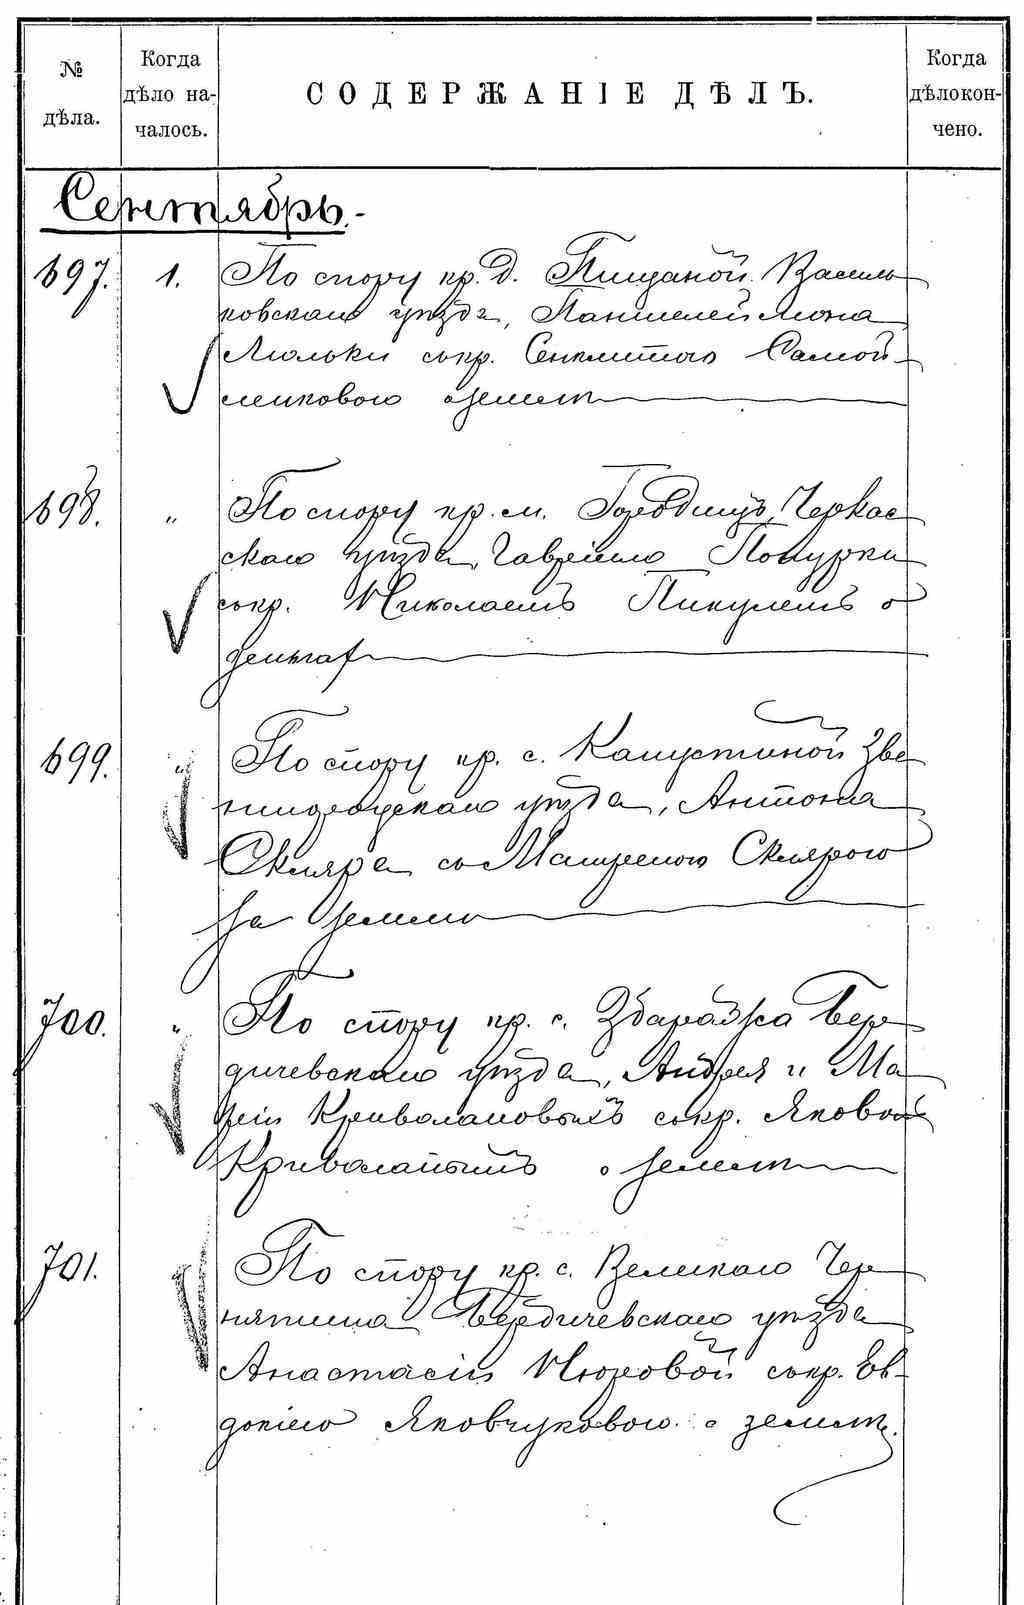 № дѣла.
Когда дѣло на-
чалось.
СОДЕРЖАНІЕ ДѢЛЪ.
Когда дѣло кон-
чено.
Сентябрь.-
697. 1. По спору кр. д. Пищаной Василь
ковскаго уѣзда, Пантелеймона
Люльки съ кр. Сенклитою Самой-
ленковою о землѣ
698. " По спору кр. м. Городища, Черкас
скаго уѣзда, Гавріила Попурки
съ кр. Николаемъ Пикулемъ о
деньгах
699. " По спору кр. с. Капустиной Зве
нигородскаго уѣзда, Антона
Скляра съ Матреною Склярою
за землю
700. " По спору кр. с. Збаражa Бер
дичевскаго уѣзда, Андрея и Ма
ріи Криволаповыхъ съ кр. Яковомъ
Криволапымъ о землѣ
701. По спору кр. с. Великаго Чер
нятина Бердичевскаго уѣзда
Анастасіи Нюровой съ кр. Ев-
докіею Яковчуковою о землѣ.